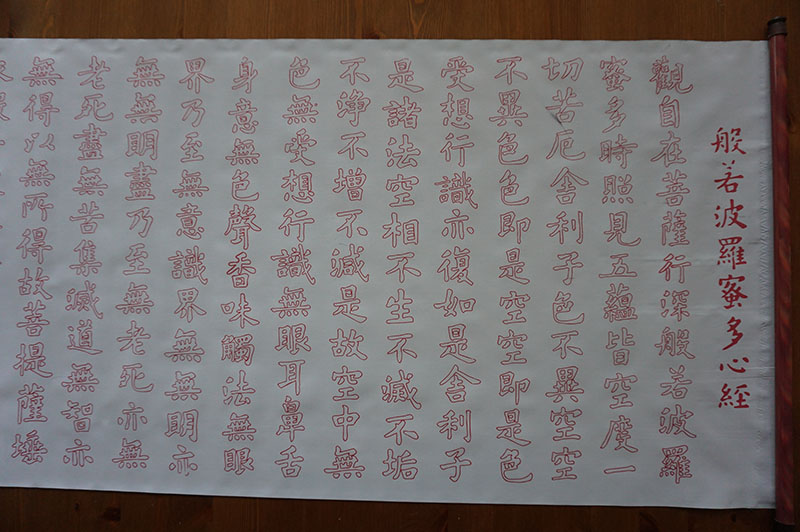 般若波羅蜜多心經
觀自在菩薩行深般若波羅
蜜多時照見五蘊皆空度一
切苦厄舍利子色不異空空
不異色色即是空空即是色
受想行識亦復如是舍利子
是諸法空相不生不滅不垢
不淨不增不減是故空中無
色無受想行識無眼耳鼻舌
身意無色聲香味觸法無眼
界乃至無意識界無無明亦
無無明盡乃至無老死亦無
老死盡無苦集滅道無智亦
無得以無所得故菩提薩埵